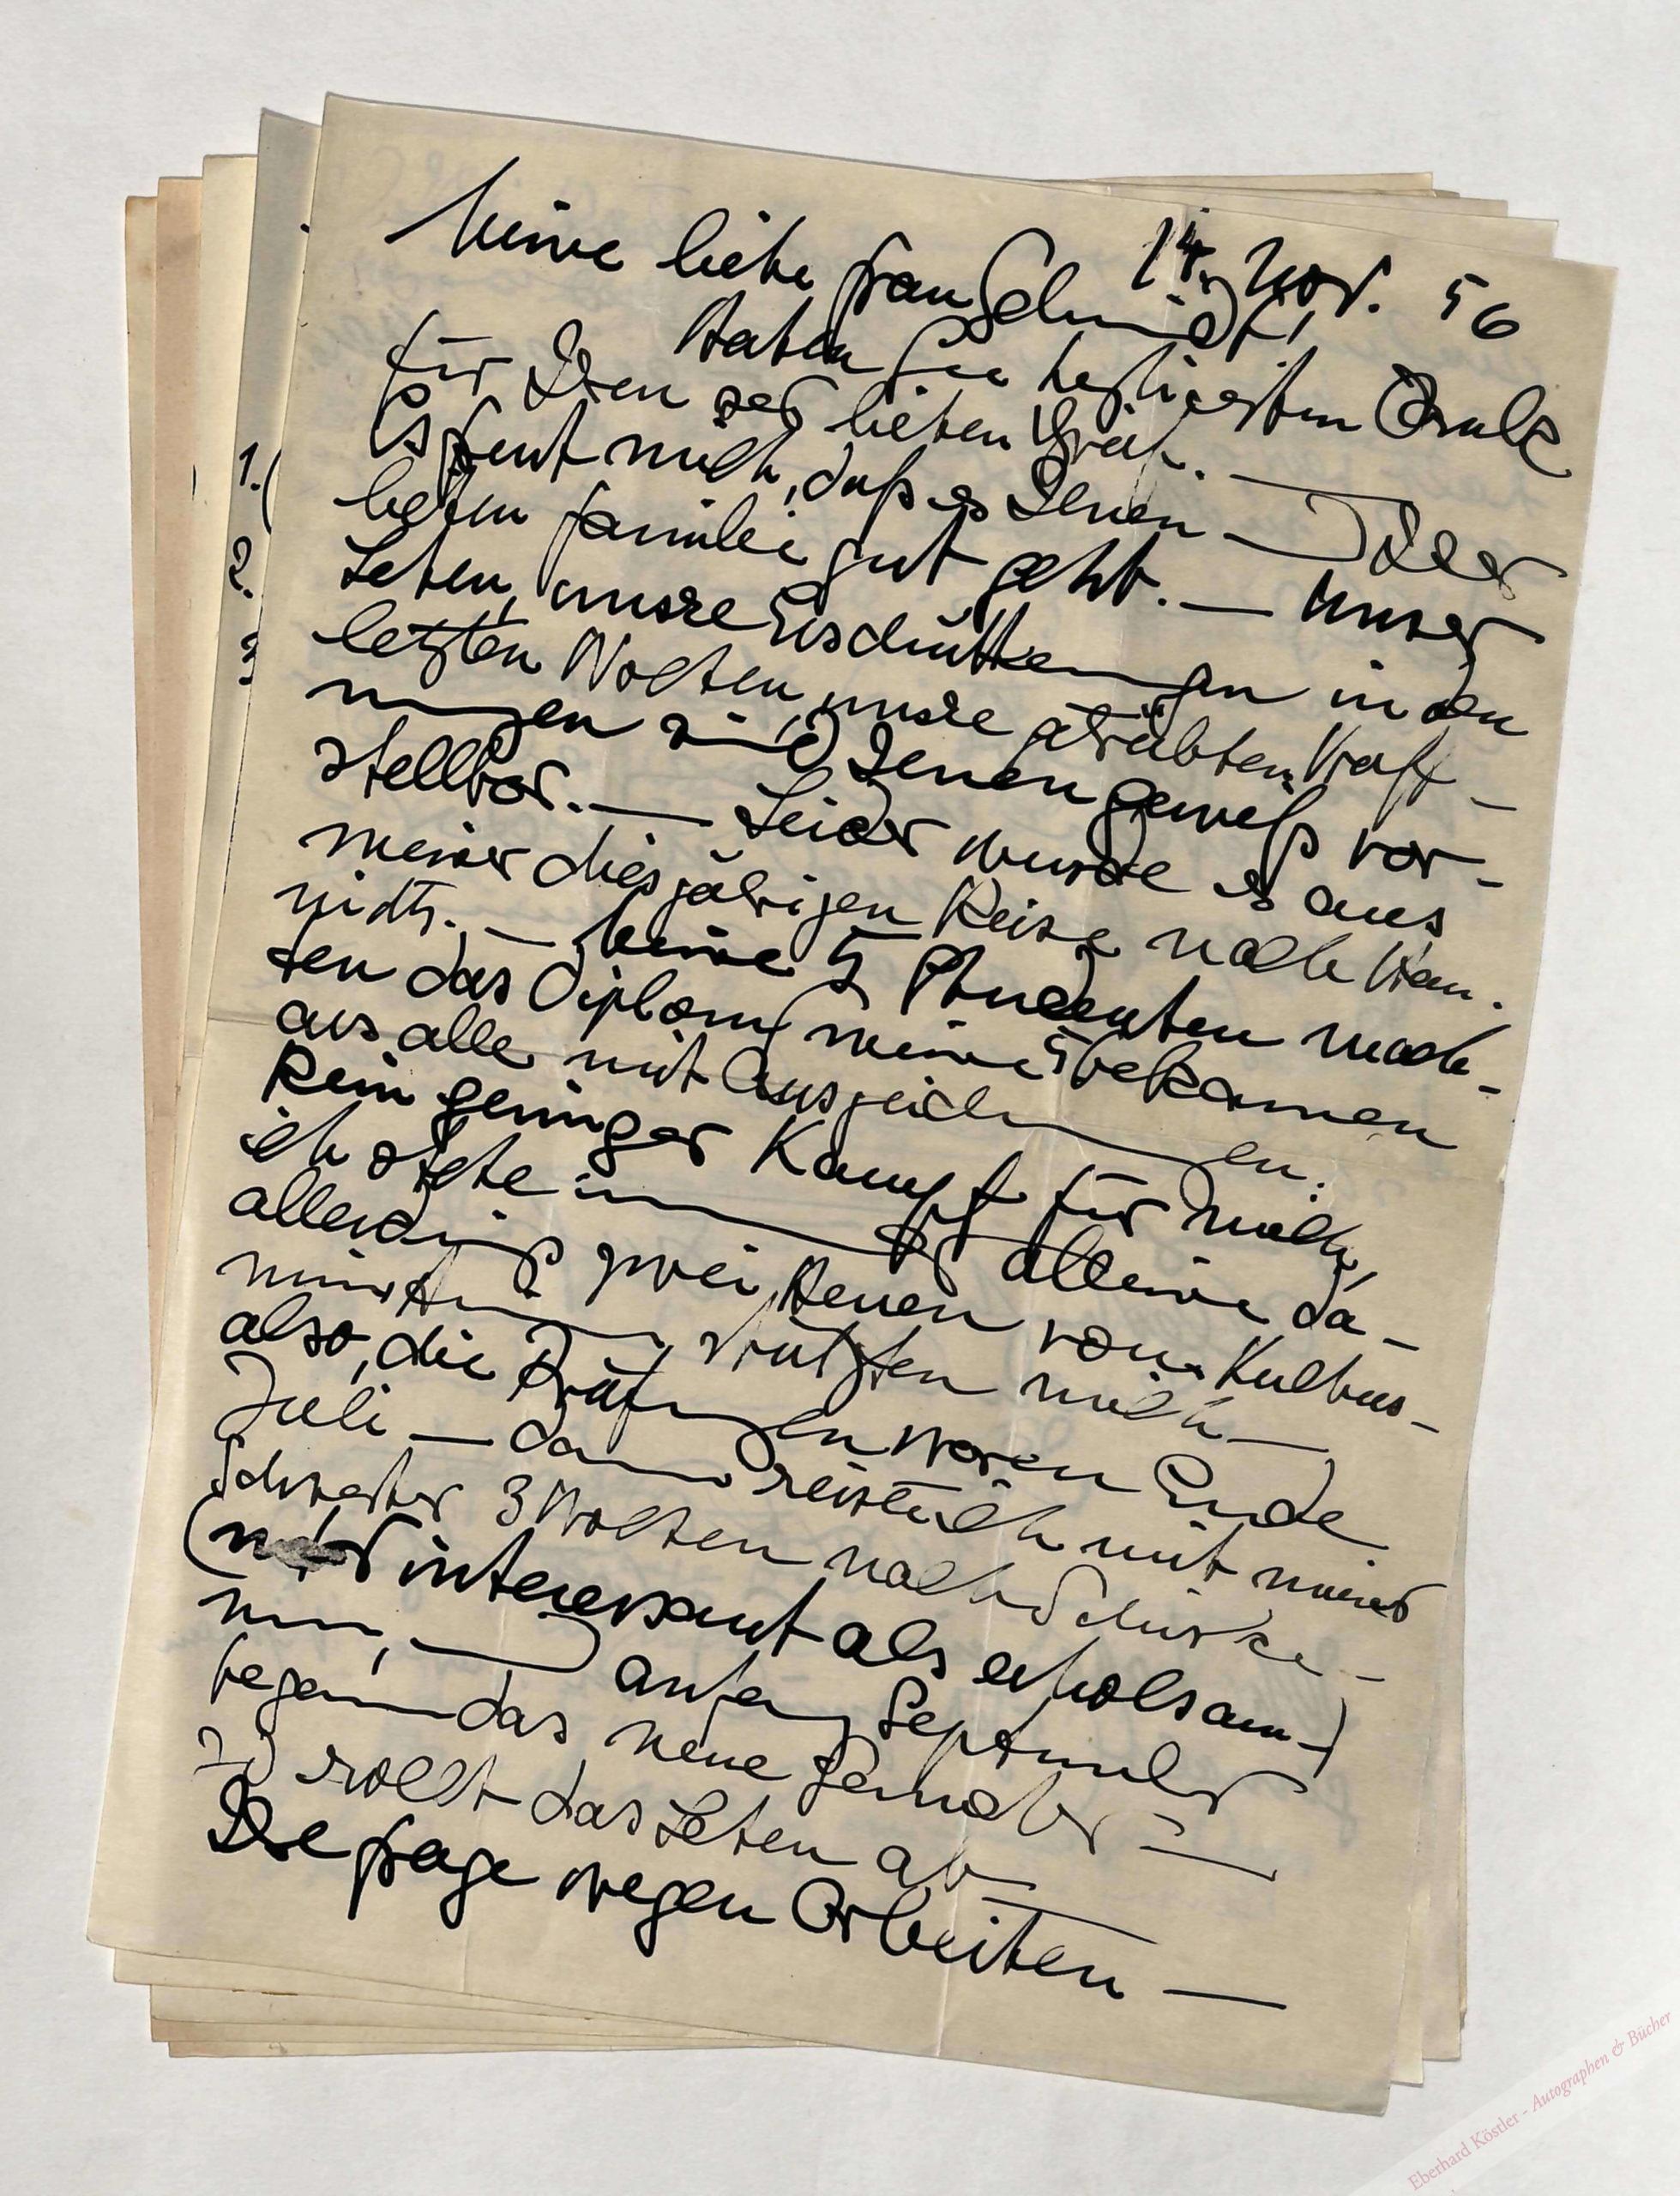 14. Nov. 56
Meine liebe Frau Schmidt!
Haben Sie herzlichsten Dank
für Ihren sehr lieben Brief. —
Es freut mich, daß es Ihnen — Ihrer
lieben Familie gut geht. — Unser
Leben, unsre Erschütterungen in den
letzten Wochen, unsre getrübten Hoff-
nungen sind Ihnen gewiß vor-
stellbar. — Leider wurde es aus
meiner diesjährigen Reise nach
nichts. — Meine 5 Studenten mach-
ten das Diplom, meine 5 bekamen
alle mit Auszeichnungen.
Kein geringer Kampf für mich,
ich stehe immer alleine da —
allerdings zwei Herren vom Kultus-
ministerium stützten mich —
also, die Prüfungen waren Ende
Juli — dann reiste ich mit meiner
Schwester 3 Wochen nach Schierke —
(mehr interessant als erholsam —)
nun, — Anfang September
begann das neue Semester —
So rollt das Leben ab —
Ihre Frage wegen Arbeiten —
1.(
2.
3
Eberhard Köstler - Autographen & Bücher